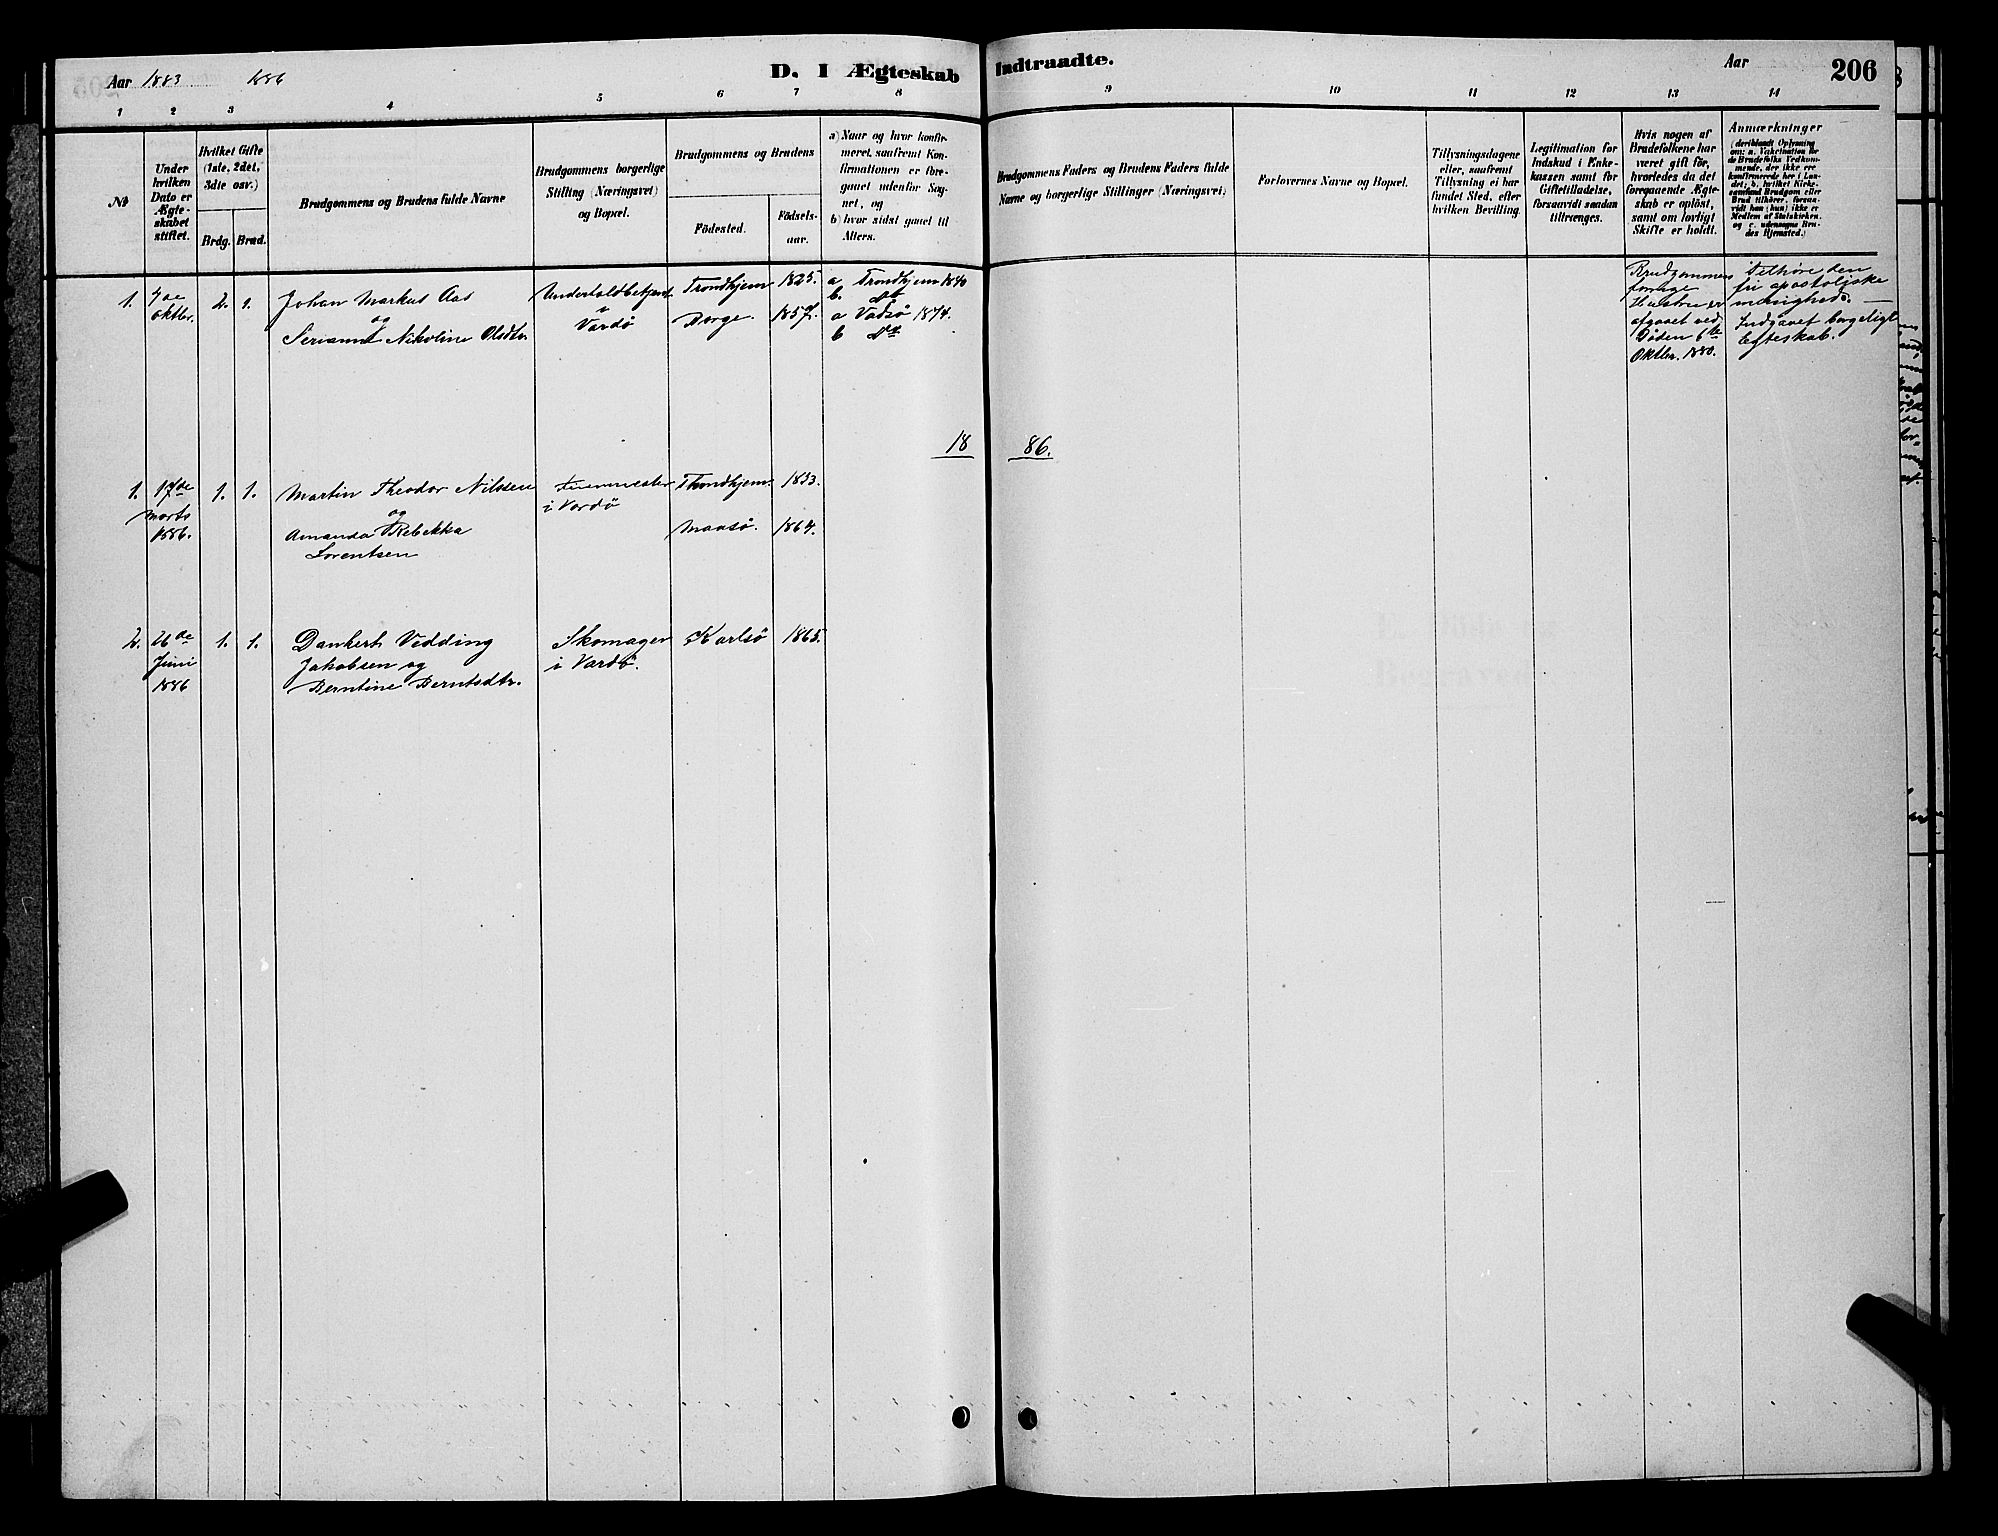 Aar 1883 1886
D. I Ægteskab Indtraadte.
Aar
206
1 2 3 4 5 6 7 8 9 10 11 12 13 14
No
Under
hvilken
Dato er
Ægte-
skabet
stiftet.
Hvilket Gifte
(1ste, 2det,
3die osv.)
Brdg. Brud.
Brudgommens og Brudens fulde Navne
Brudgommens borgerlige
Stilling (Næringsvei)
og Bopæl.
Brudgommens og Brudens
Födested.
Födsels-
aar.
a) Naar og hvor konfir-
meret, saafremt Kon-
firmationen er fore-
gaaet udenfor Sog-
net, og
b) hvor sidst gaaet til
Alters.
Brudgommens Faders og Brudens Faders fulde
Navne og borgerlige Stillinger (Næringsvei)
Forlovernes Navne og Bopæl.
Tillysningsdagene
eller, saafremt
Tillysning ei har
fundet Sted, efter
hvilken Bevilling.
Legitimation for
Indskud i Enke-
kassen samt for
Giftetilladelse,
forsaavidt saadan
tiltrænges.
Hvis nogen af
Brudefolkene har
været gift för,
hvorledes da det
foregaaende Ægte-
skab er oplöst,
samt om lovligt
Skifte er holdt.
Anmærkninger
(deriblandt Oplysning
om: a. Vakcination for
de Brudefolks Vedkom-
mende, der ikke ere
konfirmerede her i Lan-
det; b. hvilket Kirke-
samfund Brudgom eller
Brud tilhører, forsaa-
vidt han (hun) ikke er
Medlem af Statskirken.
og c. udensogns Bru-
des Hjemsted.)
1. 4de Oktbr. 2. 1.
Johan Markus Aas
og
Nikoline Olsdtr.
i
Vardø
Trondhjem 1825.
Borge. 1857.
a Trondhjem 1840
b. do
a Vadsø 1874.
b do
Brudgommens
forrige
Hustru er
afgaaet ved
Døden 6te
Oktbr. 1880.
Tilhøre den
fri apostoliske
menighed. —
Indgaaet borgeligt
Egteskab.
18 86.
1. 17de
Marts
1886.
1. 1.
Martin Theodor Nilssen
og
Amanda Rebekka
Lorentsen
i Vardø
Trondhjem. 1853.
Maasø. 1864.
2. 26de
Juni
1886
1. 1.
Dankert Vedding
Jakobsen og
Berntine Berntsdtr.
Skomager
i Vardø.
Karlsø 1865.